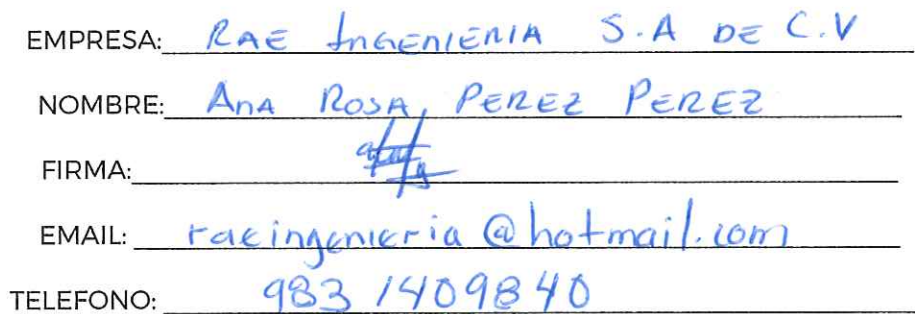 EMPRESA: RAE INGENIERIA S.A DE C.V
NOMBRE: ANA ROSA PEREZ PEREZ
FIRMA:
EMAIL: raeingenieria@hotmail.com
TELEFONO: 983 1409840